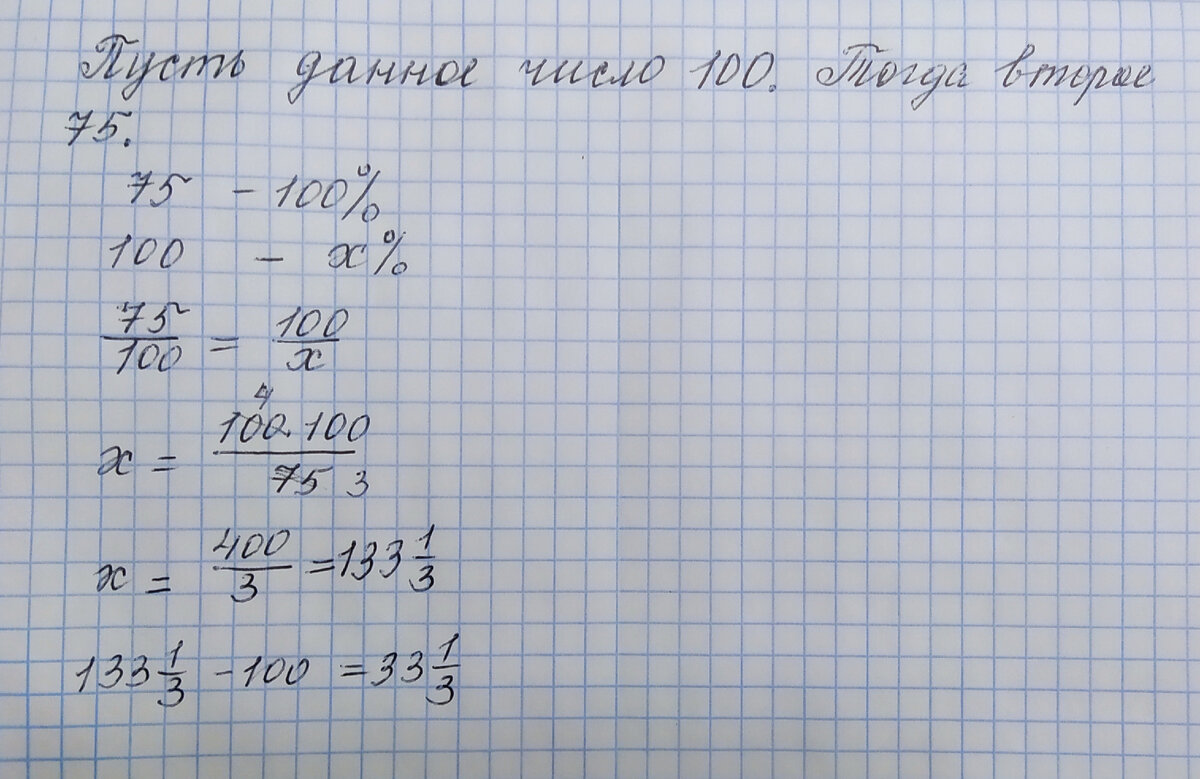 Пусть данное число 100. Тогда второе
75.
75 - 100%
100 - x%
75/100 = 100/x
x = 100 · 100 / 75 4 3
x = 400/3 = 133 1/3
133 1/3 - 100 = 33 1/3